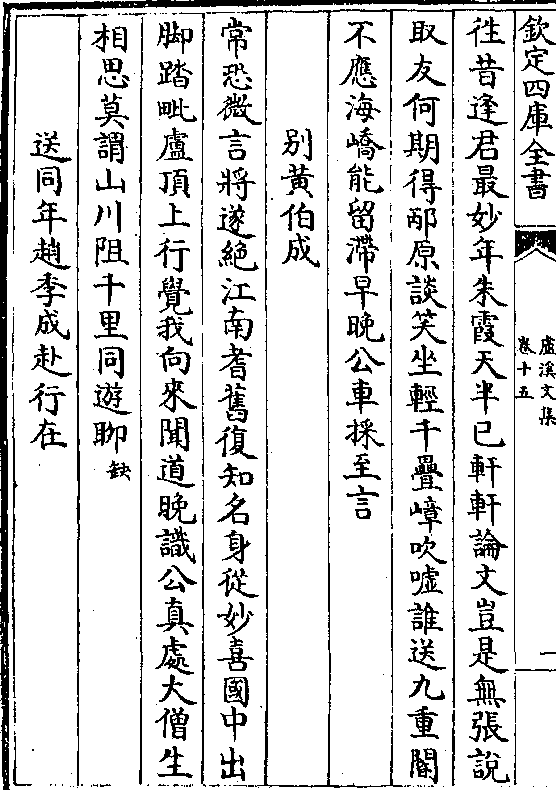 欽定四庫全書
盧溪文集
卷十五
一
徃昔逢君最妙年朱霞天半已軒軒論文豈是無張說
取友何期得邴原談笑坐輕千疊嶂吹噓誰送九重閽
不應海嶠能留滯早晚公車採至言
别黄伯成
常恐微言將遂絶江南耆舊復知名身從妙喜國中出
脚踏毗盧頂上行覺我向來聞道晚識公真處大僧生
相思莫謂山川阻千里同遊聊缺
送同年趙季成赴行在